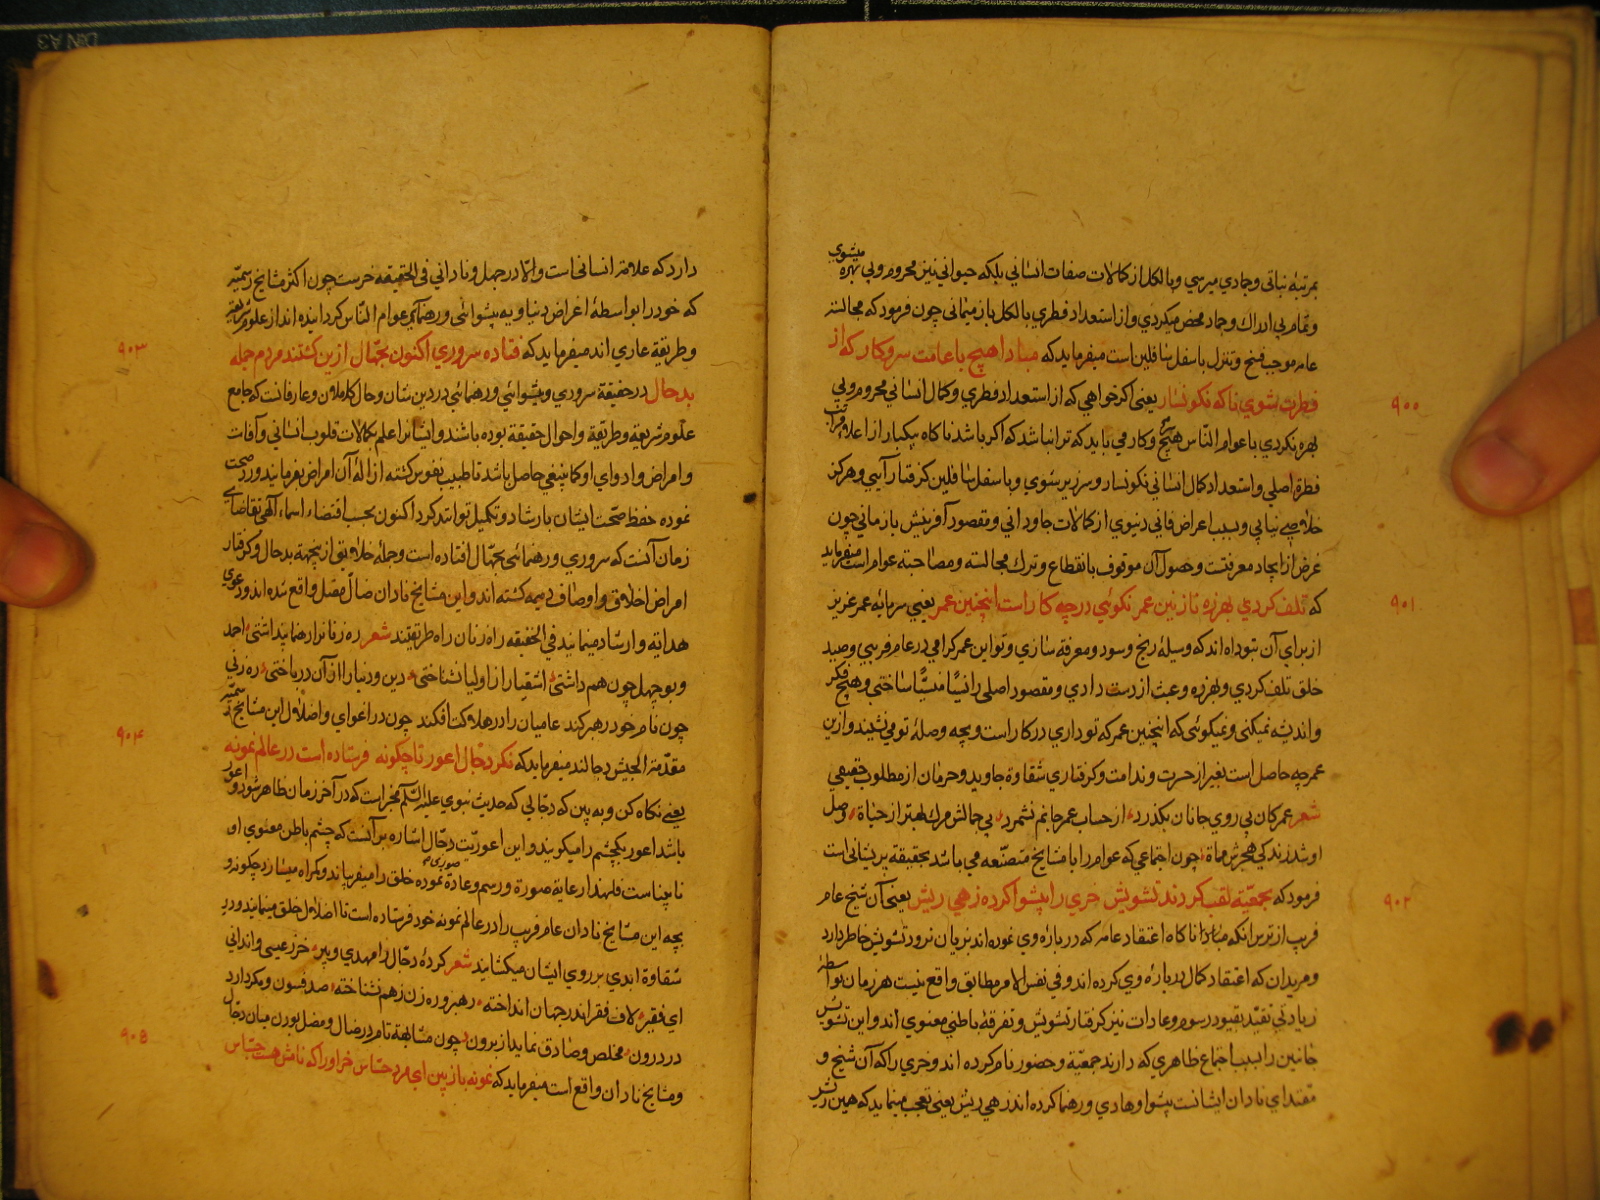 بمرتبهٔ نباتی و جمادی میرسی و بالکل از کمالات صفات انسانی بلکه حیوانی نیز محروم و بی بهره میشوی
و تمام بی ادراک و جماد محض میگردی و از استعداد فطری بالکل باز میمانی چون فرمود که مجالست
عامه موجب فسخ و تنزل باسفل سافلین است میفرماید که مبادا هیچ با عامت سر و کار که از
فطرت شوی ناگه نگونسار یعنی اگر خواهی که از استعداد فطری و کمال انسانی محروم و بی
۹۰۰
بهره نگردی با عوام الناس هیچ سر و کار می باید که ترا نباشد که اگر باشد ناگاه بیکبار از اعلا مراتب
فطرة اصلی و استعداد کمال انسانی نگونسار و سرزیر شوی و باسفل سافلین گرفتار آیی و هرگز
خلاصی نیابی و بسبب اعراض فانی دنیوی از کمالات جاودانی و مقصود آفرینش باز مانی چون
غرض از ایجاد معرفتست و حصول آن موقوف بانقطاع و ترک مجالسته و مصاحبة عوام است میفرماید
که تلف کردی بهرزه نازنین عمر نگوئی در چه کار است اینچنین عمر یعنی سرمایه عمر عزیز
۹۰۱
از برای آن بتو داه اند که وسیلهٔ ربح و سود و معرفة سازی و تو این عمر گرامی در عام فریبی و صید
خلق تلف کردی و بهرزه و عبث از دست دادی و مقصود اصلی را نسیًا منسیًّا ساختی و هیچ فکر
و اندیشه نمیکنی و نمیگوئی که اینچنین عمر که تو داری در کار است و بچه وصلهٔ تو می نشیند و ازین
عمر چه حاصل است بغیر از حسرت و ندامت و گرفتاری شقاوة جاوید و حرمان از مطلوب حقیقی
شعر عمر کان بی روی جانان بگذرد از حساب عمر جانم نشمرد بی جمالش مرگ بهتر از حیاة وصل
او شد زندگی هجرش مماة چون اجتماعی که عوام را با مشایخ متصنّعه می باشد بحقیقة پریشانی است
فرمود که بجمعیّة لقب کردند تشویش خری را پیشوا کرده زهی ریش یعنی آن شیخ عام
۹۰۲
فریب از ترس آنکه مبادا ناگاه اعتقاد عامه که در بارهٔ وی نموده اند بزیان نرود تشویش خاطر دارد
و مریدان که اعتقاد کمال در بارهٔ وی کرده اند و فی نفس الامر مطابق واقع نیست هر زمان بواسطهٔ
زیادتی تقیّد بقیود رسوم و عادات نیز گرفتار تشویش و تفرقهٔ باطنی معنوی اند و این تشویش
جانبین را بسبب اجتماع ظاهری که دارند جمعیّة و حضور نام کرده اند و خری را که آن شیخ و
مقتدای نادان ایشانست پیشوا و هادی و رهنما کرده اند زهی ریش یعنی تعجب مینماید که همین ریش
دارد که علامة انسانی است و الّا در جهل و نادانی فی الحقیقه خرست چون اکثر مشایخ رسمیّه
که خود را بواسطهٔ اغراض دنیاویه بپیشوائی و رهنمائی عوام النّاس گردانیده اند از علوم شریعة
و طریقة عاری اند میفرماید که فتاده سروری اکنون بجهّال ازین گشتند مردم جمله
۹۰۳
بدحال در حقیقة سروری و پیشوائی و رهنمائی در دین شان و حال کاملان و عارفانست که جامع
علوم شریعة و طریقة و احوال حقیقة بوده باشند و ایشانرا علم بکمالات قلوب انسانی و آفات
و امراض و ادوای او کما ینبغی حاصل باشد تا طبیب نفوس گشته ازالهٔ آن امراض بفرمایند و رد صحت
نموده حفظ صحّت ایشان بارشاد و تکمیل توانند کرد اکنون بحسب اقتضاء اسماء آلهی تقاضای
زمان آنست که سروری و رهنمائی بجهّال افتاده است و جملهٔ خلایق ازینجهة بدحال و گرفتار
امراض اخلاق و اوصاف ذمیمه گشته اند و این مشایخ نادان ضالّ مضلّ واقع شده اند و دعوی
هدایة و ارشاد مینمایند فی الحقیقه راه زنان راه طریقتند شعر ره زنانرا رهنما پنداشتی احمد
و بوجهل چون هم داشتی اشقیا را از اولیا نشناختی دین و دنیا را از آن درباختی ره زنی
چون نام خود رهبر کند عامیان را در هلاکت افکند چون در اغوای و اضلال این مشایخ رسمیّه
مقدّمة الجیش دجالند میفرماید که نگر دجّال اعور تا چگونه فرستاده است در عالم نمونه
۹۰۴
یعنی نگاه کن و به بین که دجّالی که حدیث نبوی علیه السّلام مخبر است که در آخر زمان ظاهر شود و اعور
باشد اعور یکچشم را میگویند و این اعوریّت دجّال اشاره بر آنست که چشم باطن معنوی او
نابیناست فلهذا رعایة صورة و رسم و عادة صوری نموده خلق را میفریباند و گمراه میسازد چگونه و
بچه این مشایخ نادان عام فریب را در عالم نمونه خود فرستاده است تا اضلال خلق مینمایند و در
شقاوة ابدی بر روی ایشان میگشایند شعر کردهٔ دجّال را مهدی و پیر خر ز عیسی وا ندانی
ای فقیر لاف فقر اندر جهان انداخته رهبر و ره زن ز هم نشناخته صد فسون و مکر دارد
در درون مخلص و صادق نماید از برون چون مشابهة تام در ضال و مضل بودن میان دجّال
و مشایخ نادان واقع است میفرماید که نمونه باز بین ای مرد حسّاس خر او را که نامش هست جسّاس
۹۰۵